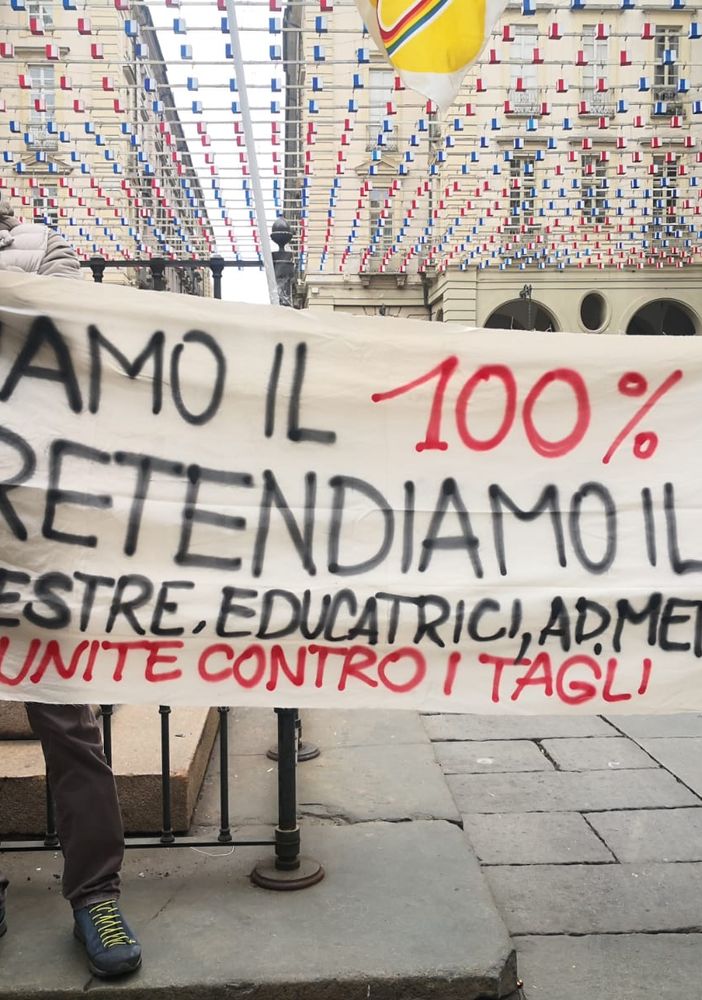 IAMO IL 100%
RETENDIAMO IL
ESTRE, EDUCATRICI, AD, MET
UNITE CONTRO I TAGLI